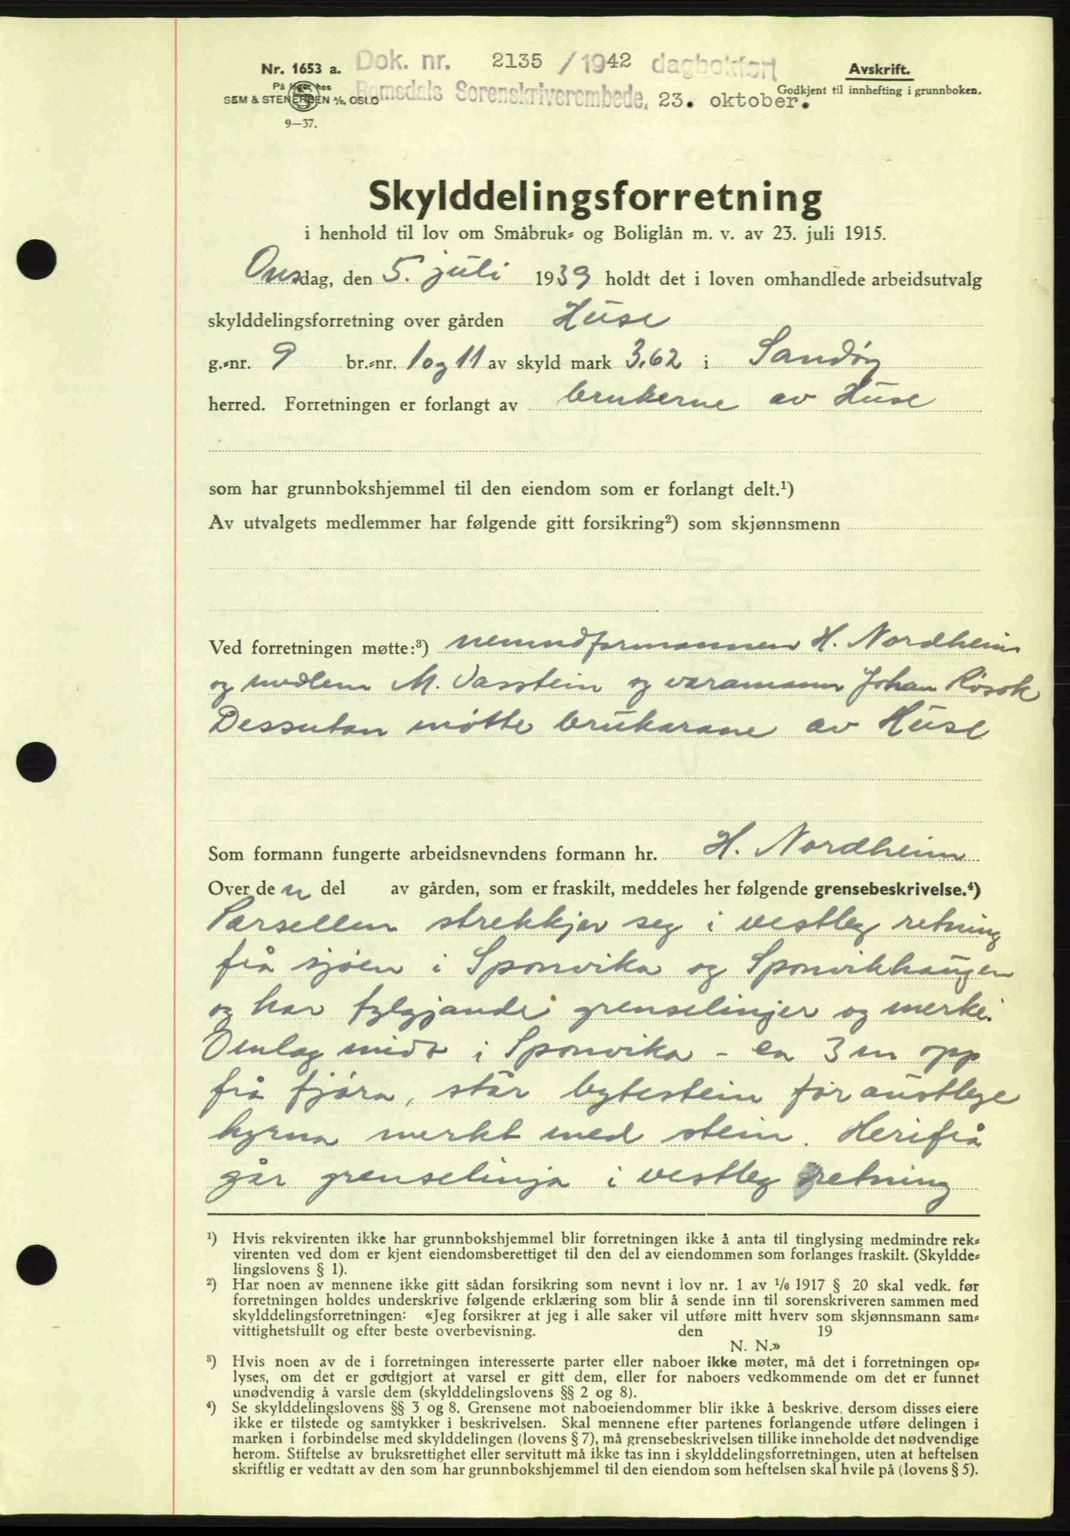 Nr. 1653 a.
På lager hos
SEM & STENERSEN A/S, OSLO
9—37.
Dok. nr. 2135 / 1942 dagbokført
Romsdals Sorenskriverembede, 23. oktober.
Avskrift.
Godkjent til innhefting i grunnboken.
Skylddelingsforretning
i henhold til lov om Småbruk- og Boliglån m. v. av 23. juli 1915.
Onsdag, den 5. juli 1939 holdt det i loven omhandlede arbeidsutvalg
skylddelingsforretning over gården Huse
g.-nr. 9 br.-nr. 1 og 11 av skyld mark 3,62 i Sandøy
herred. Forretningen er forlangt av brukerne av Huse
som har grunnbokshjemmel til den eiendom som er forlangt delt.¹)
Av utvalgets medlemmer har følgende gitt forsikring²) som skjønnsmenn
Ved forretningen møtte:³) nemndformannen H. Nordheim
og medlem M. Vasstein og varamann Johan Røsok
Dessutan møtte brukarane av Huse
Som formann fungerte arbeidsnevndens formann hr. H. Nordheim
Over de n del av gården, som er fraskilt, meddeles her følgende grensebeskrivelse.⁴)
Parsellen strekkjer seg i vestleg retning
frå sjøen i Sponvika og Sponvikhaugen
og har fylgjande grenselinjer og merke.
Omlag midt i Sponvika - ca 3 m opp
frå fjøra, står bytestein for austlege
hyrna merkt med stein. Herifrå
går grenselinja i vestleg retning
¹) Hvis rekvirenten ikke har grunnbokshjemmel blir forretningen ikke å anta til tinglysing medmindre rek-
virenten ved dom er kjent eiendomsberettiget til den del av eiendommen som forlanges fraskilt. (Skyldde-
lingslovens § 1).
²) Har noen av mennene ikke gitt sådan forsikring som nevnt i lov nr. 1 av ¹/₆ 1917 § 20 skal vedk. før
forretningen holdes underskrive følgende erklæring som blir å sende inn til sorenskriveren sammen med
skylddelingsforretningen: «Jeg forsikrer at jeg i alle saker vil utføre mitt hverv som skjønnsmann sam-
vittighetsfullt og efter beste overbevisning. den 19
N. N.»
³) Hvis noen av de i forretningen interesserte parter eller naboer ikke møter, må det i forretningen op-
lyses, om det er godtgjort at varsel er gitt dem, eller for naboers vedkommende om det er funnet
unødvendig å varsle dem (skylddelingslovens §§ 2 og 8).
⁴) Se skylddelingslovens §§ 3 og 8. Grensene mot naboeiendommer blir ikke å beskrive, dersom disses eiere
ikke er tilstede og samtykker i beskrivelsen. Skal mennene efter partenes forlangende utføre delingen i
marken i forbindelse med skylddelingen (lovens § 7), må grensebeskrivelsen tillike inneholde det nødvendige
herom. Stiftelse av bruksrettighet eller servitutt må ikke tas inn i skylddelingsforretningen, uten at heftelsen
skriftlig er vedtatt av den som har grunnbokshjemmel til den eiendom som heftelsen skal hvile på (lovens § 5).